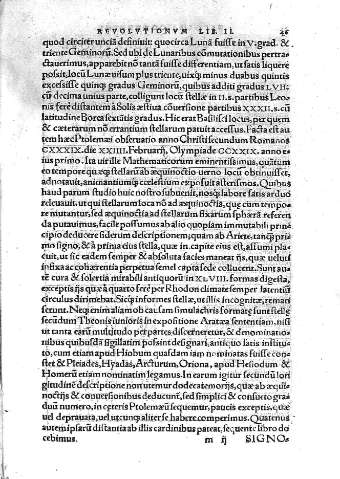 REVOLVTIONVM LIB. II. 46
quod circiter unciā definiuit: quocirca Lunā fuisse in V. grad. &
triente Geminorū. Sed ubi de Lunaribus cōmutationibus pertra
ctauerimus, apparebit nō tantā fuisse differentiam, ut satis liquere
possit, locū Lunæ uisum plus triente, uixq̢ minus duabus quintis
excessisse quinq̢ gradus Geminorū, quibus additi gradus LVII:
cū decima unius parte, colligunt locū stellæ in II. s. partibus Leo-
nis ferè distantem à Solis æstiua cōuersione partibus XXXII. s. cū
latitudine Borea sextātis gradus. Hic erat Basilisci locus, per quem
& cæterarum nō errantium stellarum patuit accessus. Facta est au
tem hæc Ptolemæi obseruatio anno Christi secundum Romanos
CXXXIX. die XXIIII. Februarij, Olympiade CCXXIX. anno e-
ius primo. Ita uir ille Mathematicorum eminentissimus, quātum
eo tempore quæq̢ stellarū ab æquinoctio uerno locū obtinuisset,
adnotauit, animantiumq̢ cælestium exposuit asterismos. Quibus
haud parum studio huic nostro subuenit, nosq̢ labore satis arduo
releuauit, ut qui stellarum loca nō ad æquinoctia, quę cum tempo
re mutantur, sed æquinoctia ad stellarum fixarum sphærā referen
da putauimus, facile possumus ab alio quopiam immutabili prin
cipio deducere siderum descriptionem; quam ab Ariete, tanq̄ pri
mo signo, & à prima eius stella, quæ in capite eius est, assumi pla-
cuit, ut sic eadem semper & absoluta facies maneat ijs, quæ uelut
infixa ac cohærentia perpetua semel capta sede collucent. Sunt au
tē cura & solertia mirabili antiquorū in XLVIII. formas digesta,
exceptis ijs quæ à quarto ferè per Rhodon climate semper latentiū
circulus dirimebat. Sicq̢ informes stellæ, ut illis incognitæ, reman
serunt. Neq̢ enim aliam ob causam simulachris formatę sunt stellę
secūdum Theonis iunioris in expositione Aratæa sententiam, nisi
ut tanta earū multitudo per partes discerneretur, & denominatio
nibus quibusdā sigillatim possint designari, antiquo satis institu-
to, cum etiam apud Hiobum quasdam iam nominatas fuisse con-
stet & Pleiades, Hyadas, Arcturum, Oriona, apud Hesiodum &
Homerū etiam nominatim legamus. In earum igitur secundū lon
gitudinē descriptione non utemur dodecatemorijs, quæ ab æqui-
noctijs & conuersionibus deducunt, sed simplici & consueto gra-
duū numero, in ceteris Ptolemæū sequemur, paucis exceptis, quæ
uel deprauata, uel utcunq̢ aliter se habere comperimus. Quatenus
autem ipsarū distantia ab illis cardinibus pateat, sequente libro do
cebimus. m ij SIGNO-